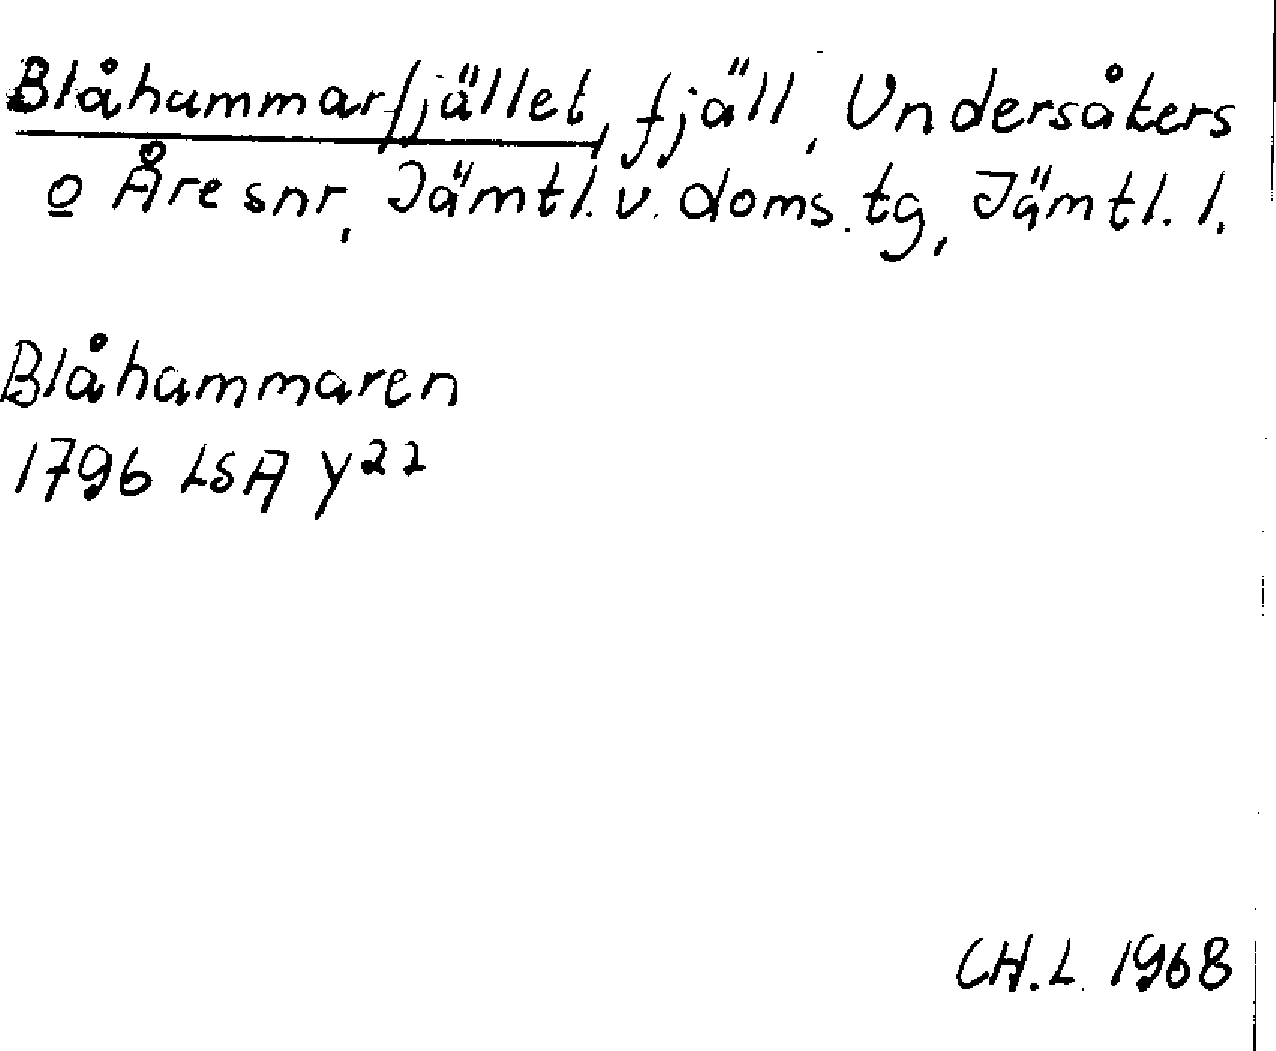 Blåhammarfjället, fjäll, Undersåkers
o Åre snr, Jämtl. v. doms. tg, Jämtl. l.
Blåhammaren
1796 LSA Y22
CH.L. 1968